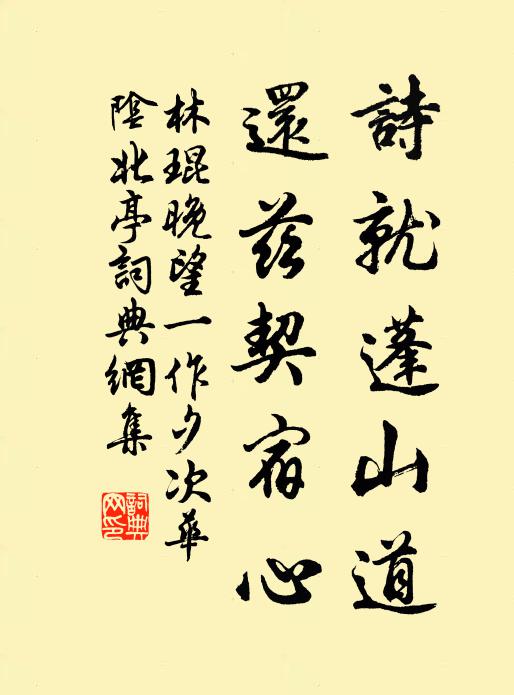 詩就蓬山道
還茲契宿心
林琨晚望一作夕次華
陰北亭詞典網集
詞典
網印